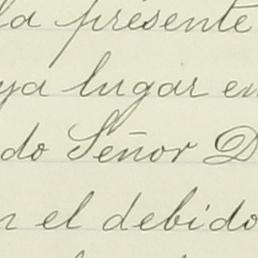 la presente
ya lugar en
do Señor D
n el debido